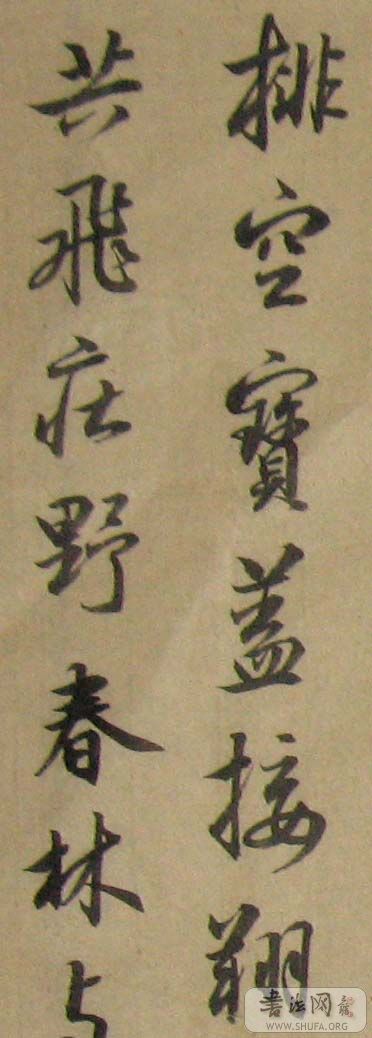 排空寳蓋接翔
共飛庄野春林与
書法网
WWW.SHUFA.ORG